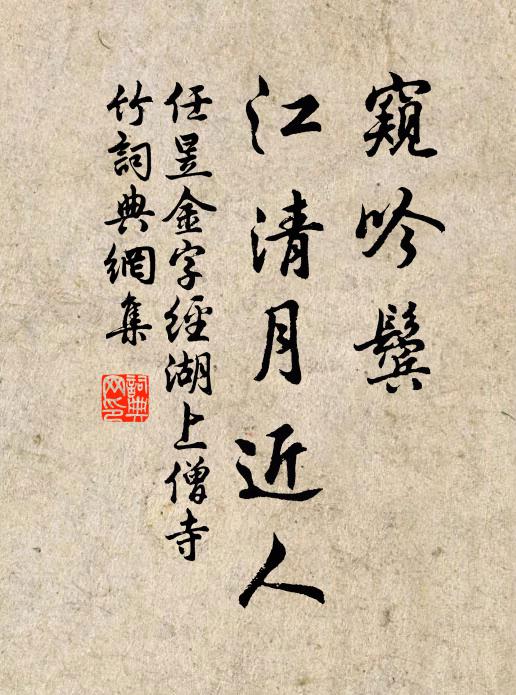 窺吟鬢
江清月近人
任昱金字經湖上僧寺
竹詞典網集
詞典网印